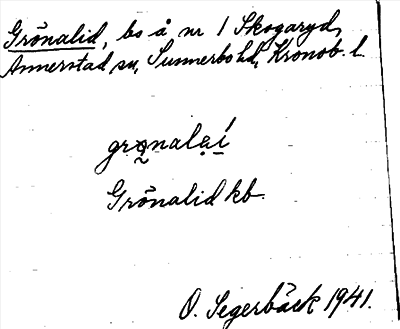 Grönalid, bs å nr 1 Skogaryd,
Annerstad sn, Sunnerbo hd, Kronob. l.
Grönalid kb.
O. Segerbäck 1941.